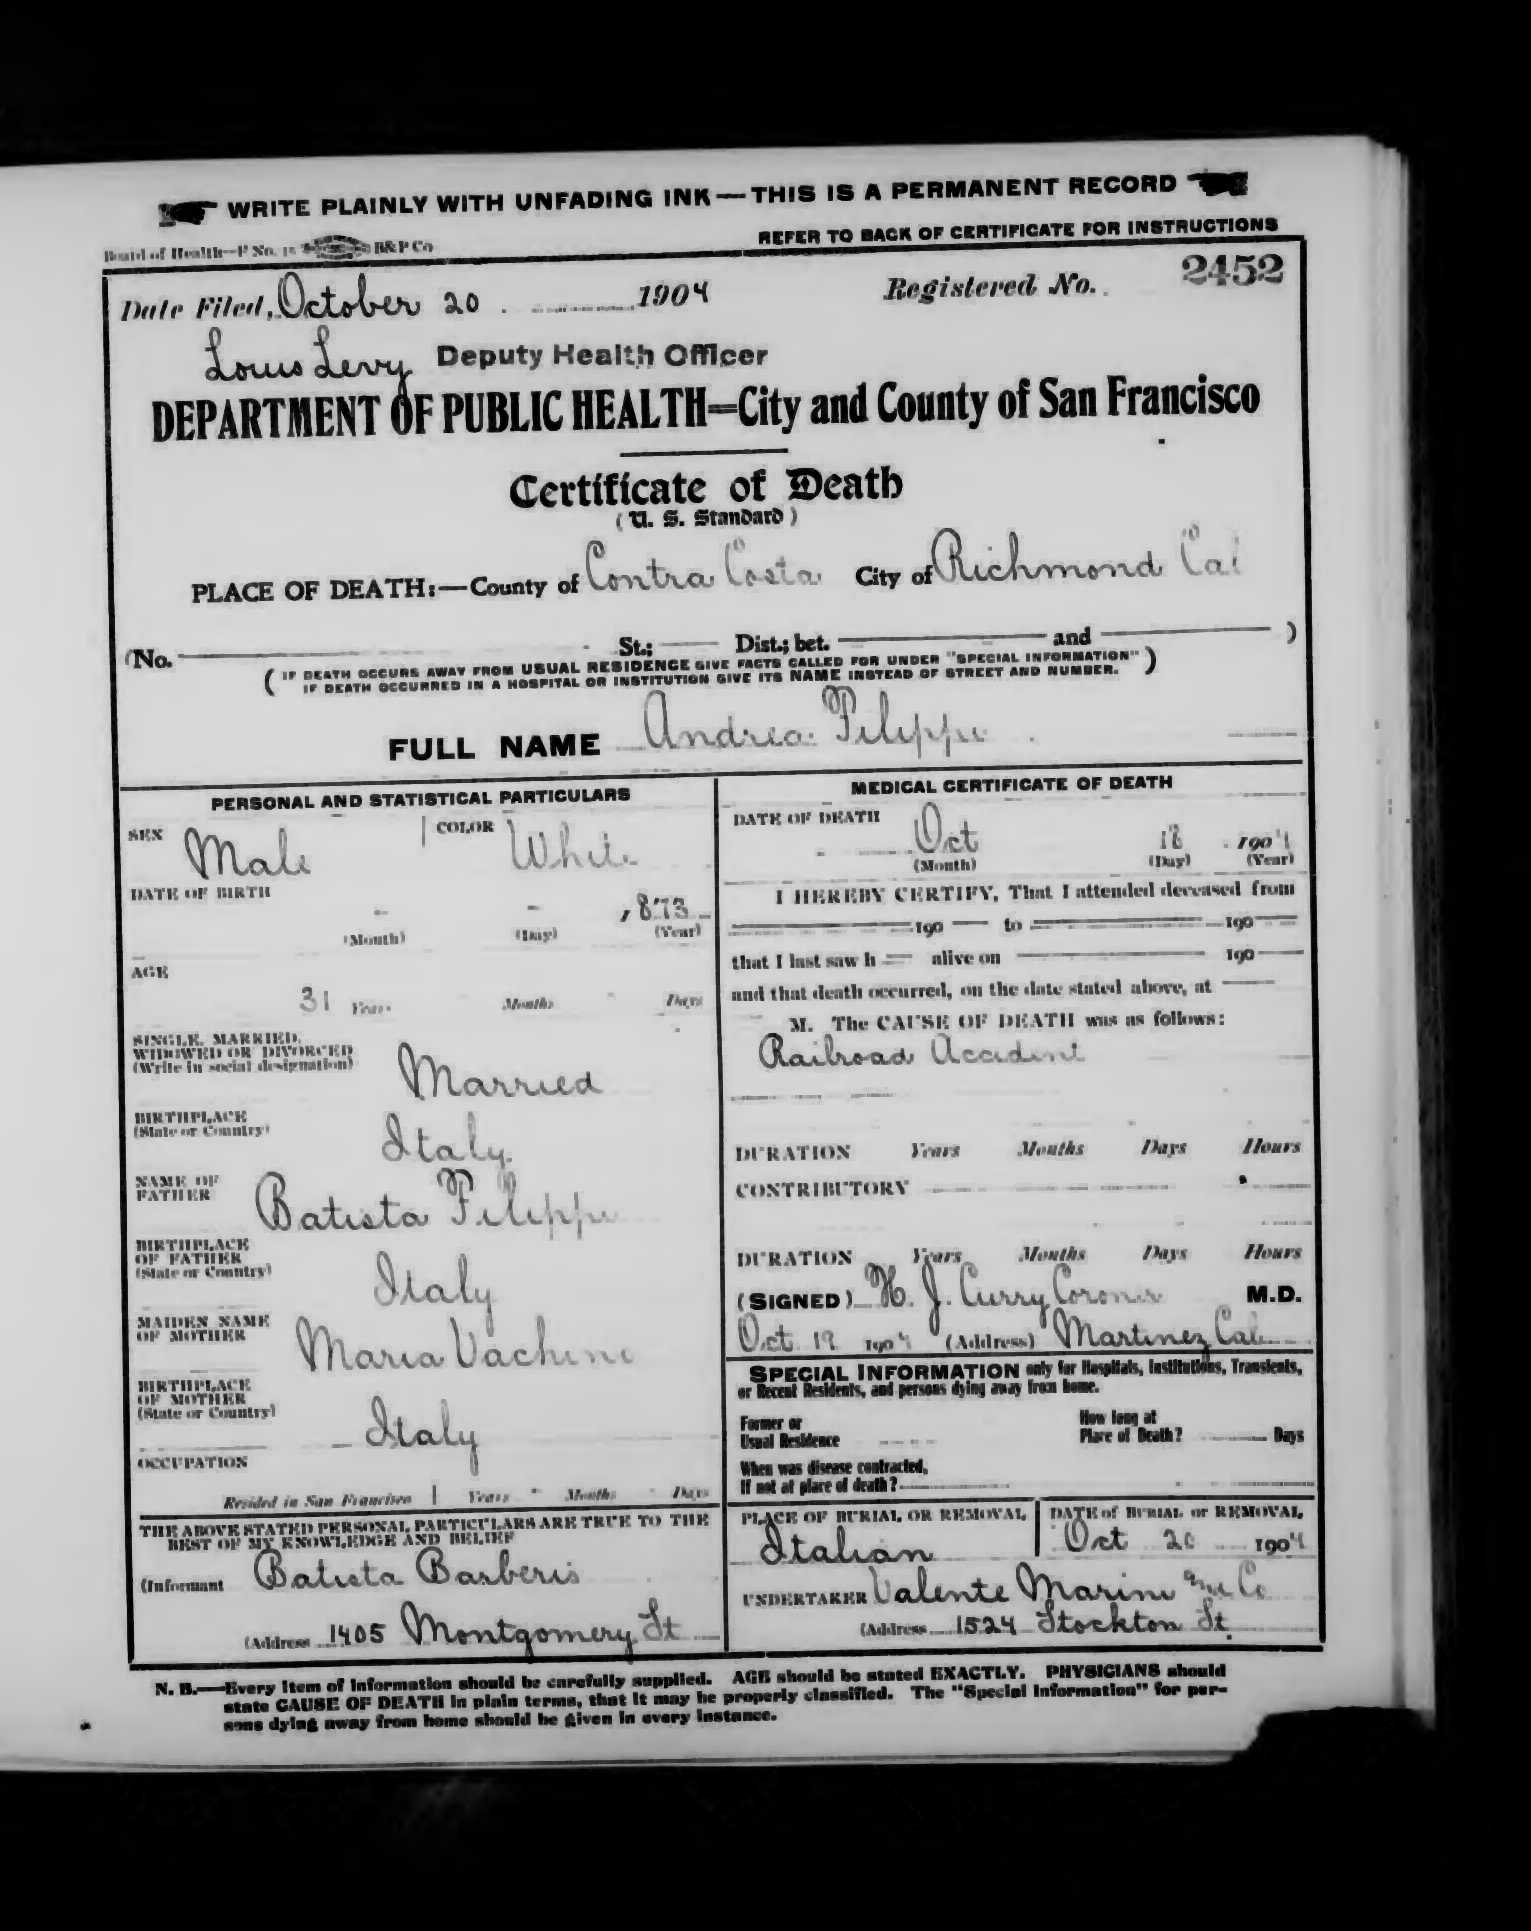 WRITE PLAINLY WITH UNFADING INK — THIS IS A PERMANENT RECORD
Board of Health—F No. 15 B&P Co
REFER TO BACK OF CERTIFICATE FOR INSTRUCTIONS
Date Filed, October 20 1904 Registered No. 2452
Louis Levy Deputy Health Officer
DEPARTMENT OF PUBLIC HEALTH=City and County of San Francisco
Certificate of Death
(U. S. Standard)
PLACE OF DEATH:—County of Contra Costa City of Richmond Cal
(No. St.; Dist.; bet. and )
(IF DEATH OCCURS AWAY FROM USUAL RESIDENCE GIVE FACTS CALLED FOR UNDER "SPECIAL INFORMATION"
IF DEATH OCCURRED IN A HOSPITAL OR INSTITUTION GIVE ITS NAME INSTEAD OF STREET AND NUMBER.)
FULL NAME Andrea Filippi
PERSONAL AND STATISTICAL PARTICULARS
SEX Male COLOR White
DATE OF BIRTH
- - 1873
(Month) (Day) (Year)
AGE
31 Years Months Days
SINGLE, MARRIED,
WIDOWED OR DIVORCED
(Write in social designation) Married
BIRTHPLACE
(State or Country) Italy
NAME OF
FATHER Batista Filippi
BIRTHPLACE
OF FATHER
(State or Country) Italy
MAIDEN NAME
OF MOTHER Maria Vachino
BIRTHPLACE
OF MOTHER
(State or Country) Italy
OCCUPATION
Resided in San Francisco Years Months Days
THE ABOVE STATED PERSONAL PARTICULARS ARE TRUE TO THE
BEST OF MY KNOWLEDGE AND BELIEF
(Informant Batista Barberis
(Address 1405 Montgomery St
MEDICAL CERTIFICATE OF DEATH
DATE OF DEATH
Oct 18 1904
(Month) (Day) (Year)
I HEREBY CERTIFY, That I attended deceased from
190 to 190
that I last saw h alive on 190
and that death occurred, on the date stated above, at
M. The CAUSE OF DEATH was as follows:
Railroad Accident
DURATION Years Months Days Hours
CONTRIBUTORY
DURATION Years Months Days Hours
(SIGNED) H. J. Curry Coroner M.D.
Oct 19 1904 (Address) Martinez Cal
SPECIAL INFORMATION only for Hospitals, Institutions, Transients,
or Recent Residents, and persons dying away from home.
Former or
Usual Residence
How long at
Place of Death? Days
When was disease contracted,
If not at place of death?
PLACE OF BURIAL OR REMOVAL
Italian
DATE of BURIAL or REMOVAL
Oct 20 1904
UNDERTAKER Valente Marini and Co
(Address 1524 Stockton St.
N. B.—Every item of information should be carefully supplied. AGE should be stated EXACTLY. PHYSICIANS should
state CAUSE OF DEATH in plain terms, that it may be properly classified. The "Special Information" for per-
sons dying away from home should be given in every instance.